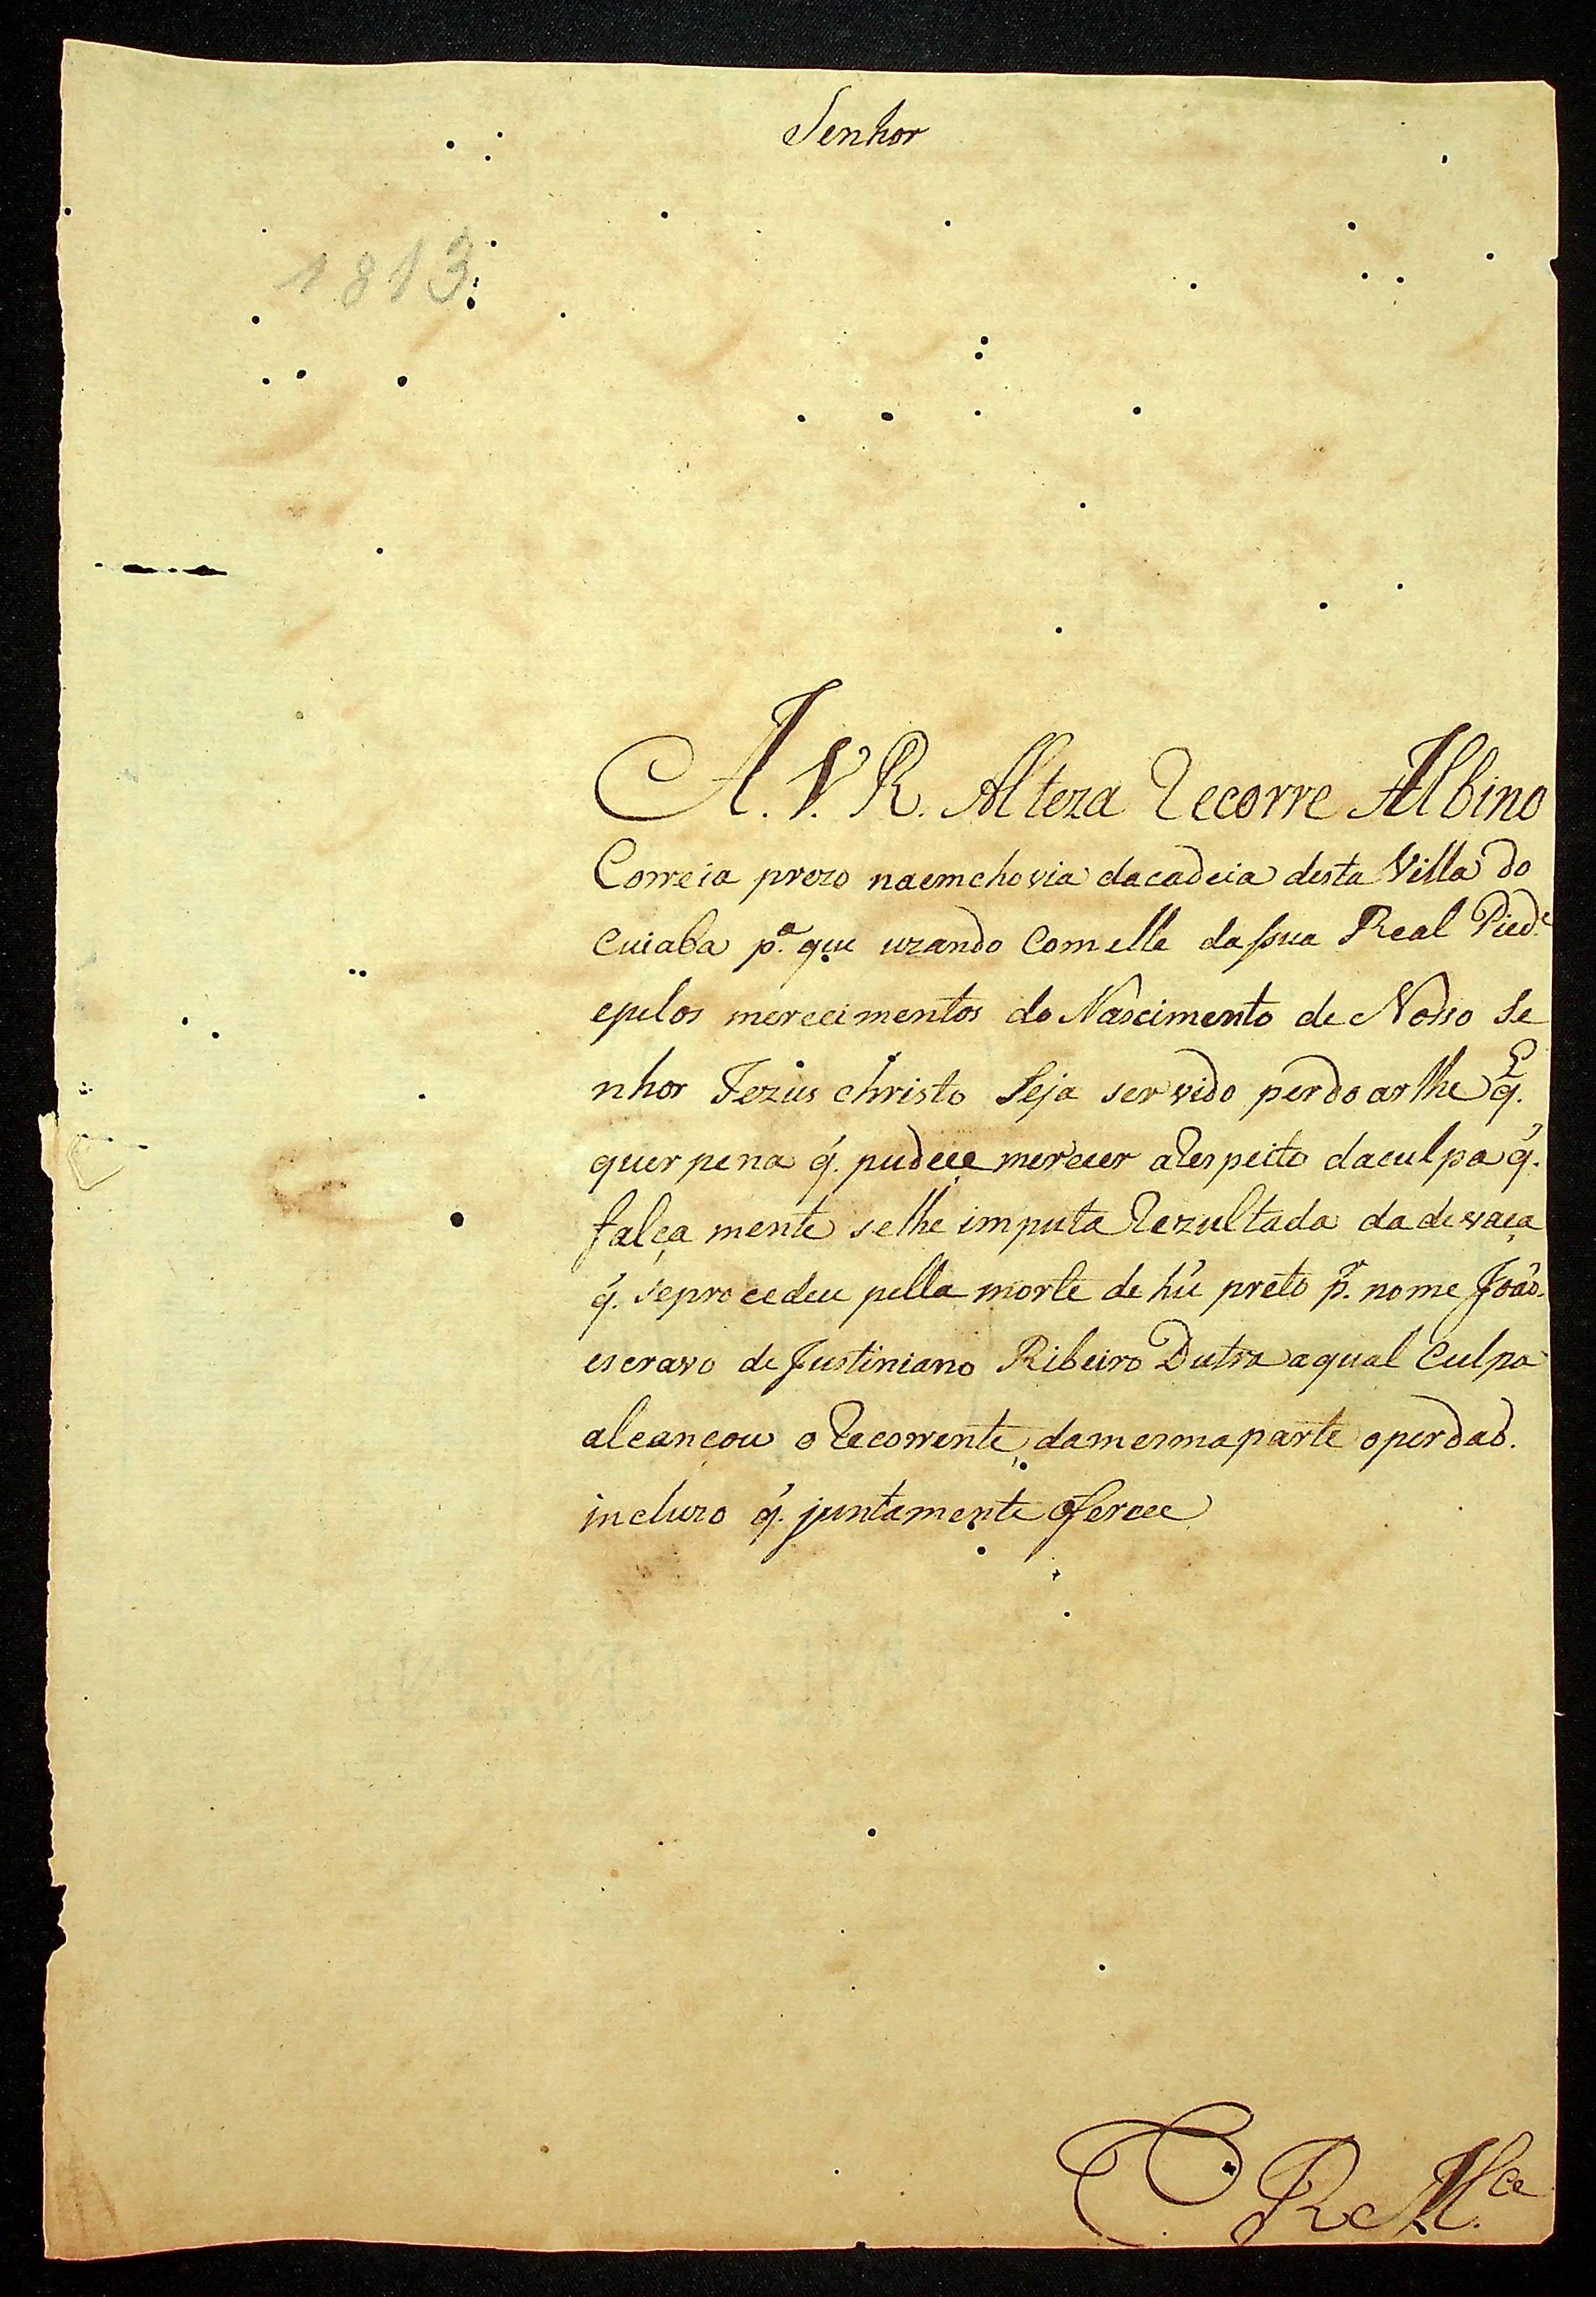 Senhor
1813
A. V. R. Alteza Recorre Albino
Correia prezo naemchovia dacadeia desta Villa do
Cuiaba p.ª que uzando Comelle da sua Real Pied.e
epelos merecimentos do Nascimento de Nosso Se
nhor Jezus christo Seja servido perdoarlhe q.
quer pena q. pudeçe mereçer aRespeito daculpa q.
falça mente selhe imputa Rezultada da devaça
q. seprocedeu pella morte de hú preto p.r nome João.
escravo de Justiniano Ribeiro Dutra aqual Culpa
alcançou o Recorrente, damesmaparte operdaõ.
incluzo q. juntamente oferece
R. M.ce